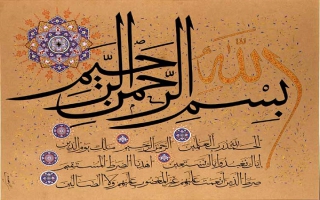 بِسْمِ اللّٰه الرَّحْمنِ الرَّحِيمِ
الحمد لله رب العلمين الرحمن الرحيم ملك يوم الدين
اياك نعبد واياك نستعين اهدنا الصراط المستقيم
صراط الذين انعمت عليهم غير المغضوب عليهم ولا الضالين